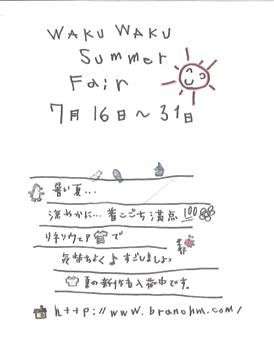 WAKU WAKU
Summer
Fair
7月16日～31日
暑い夏...
涼やかに... 着ごこち満点 100
リネンウェア で
気持ちよく すごしましょう
夏の新作も入荷中です。
http://www.branohm.com/